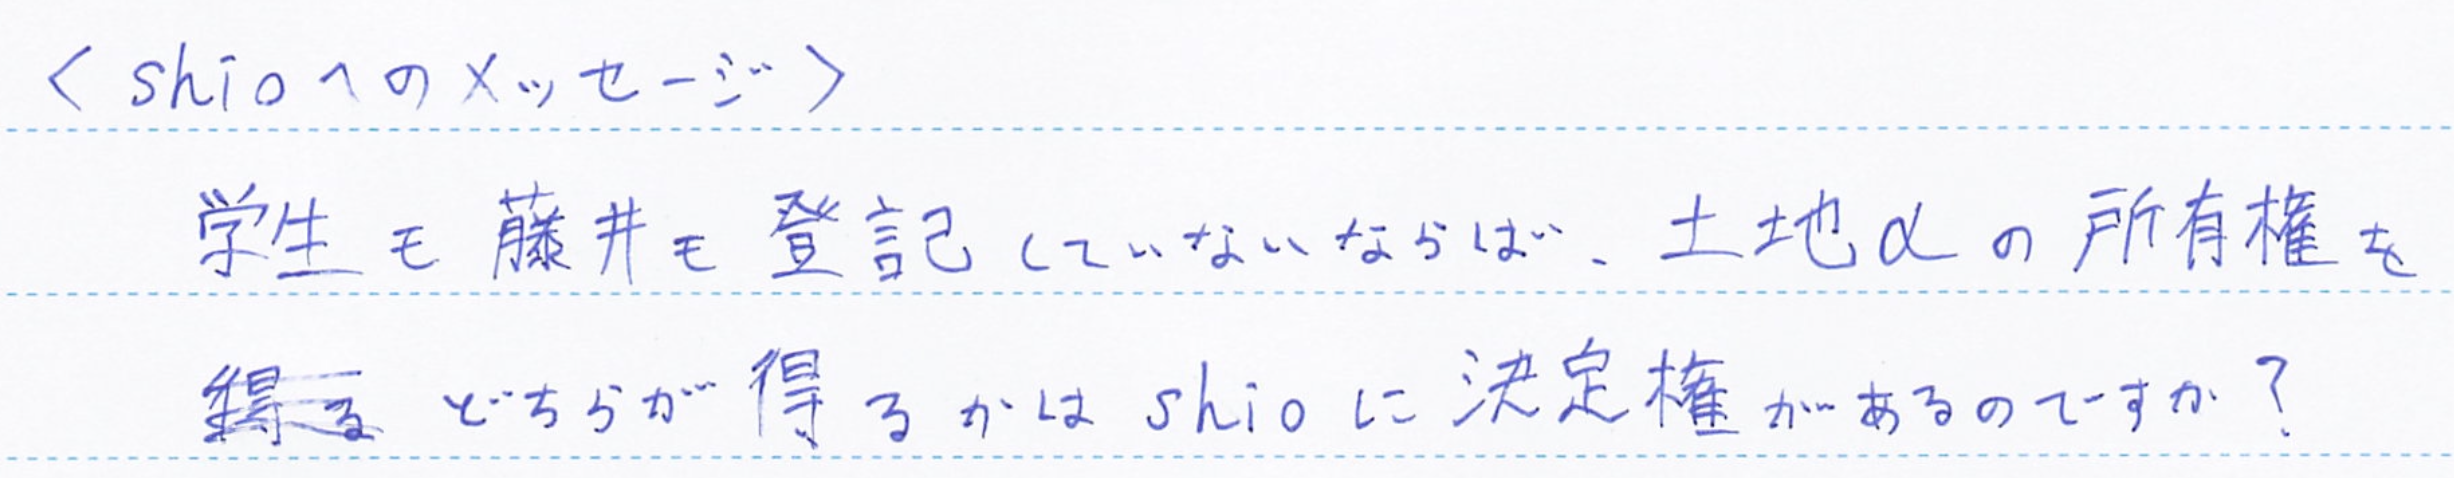 <shioへのメッセージ>
学生も藤井も登記していないならば、土地αの所有権を
得る どちらが得るかはshioに決定権があるのですか?